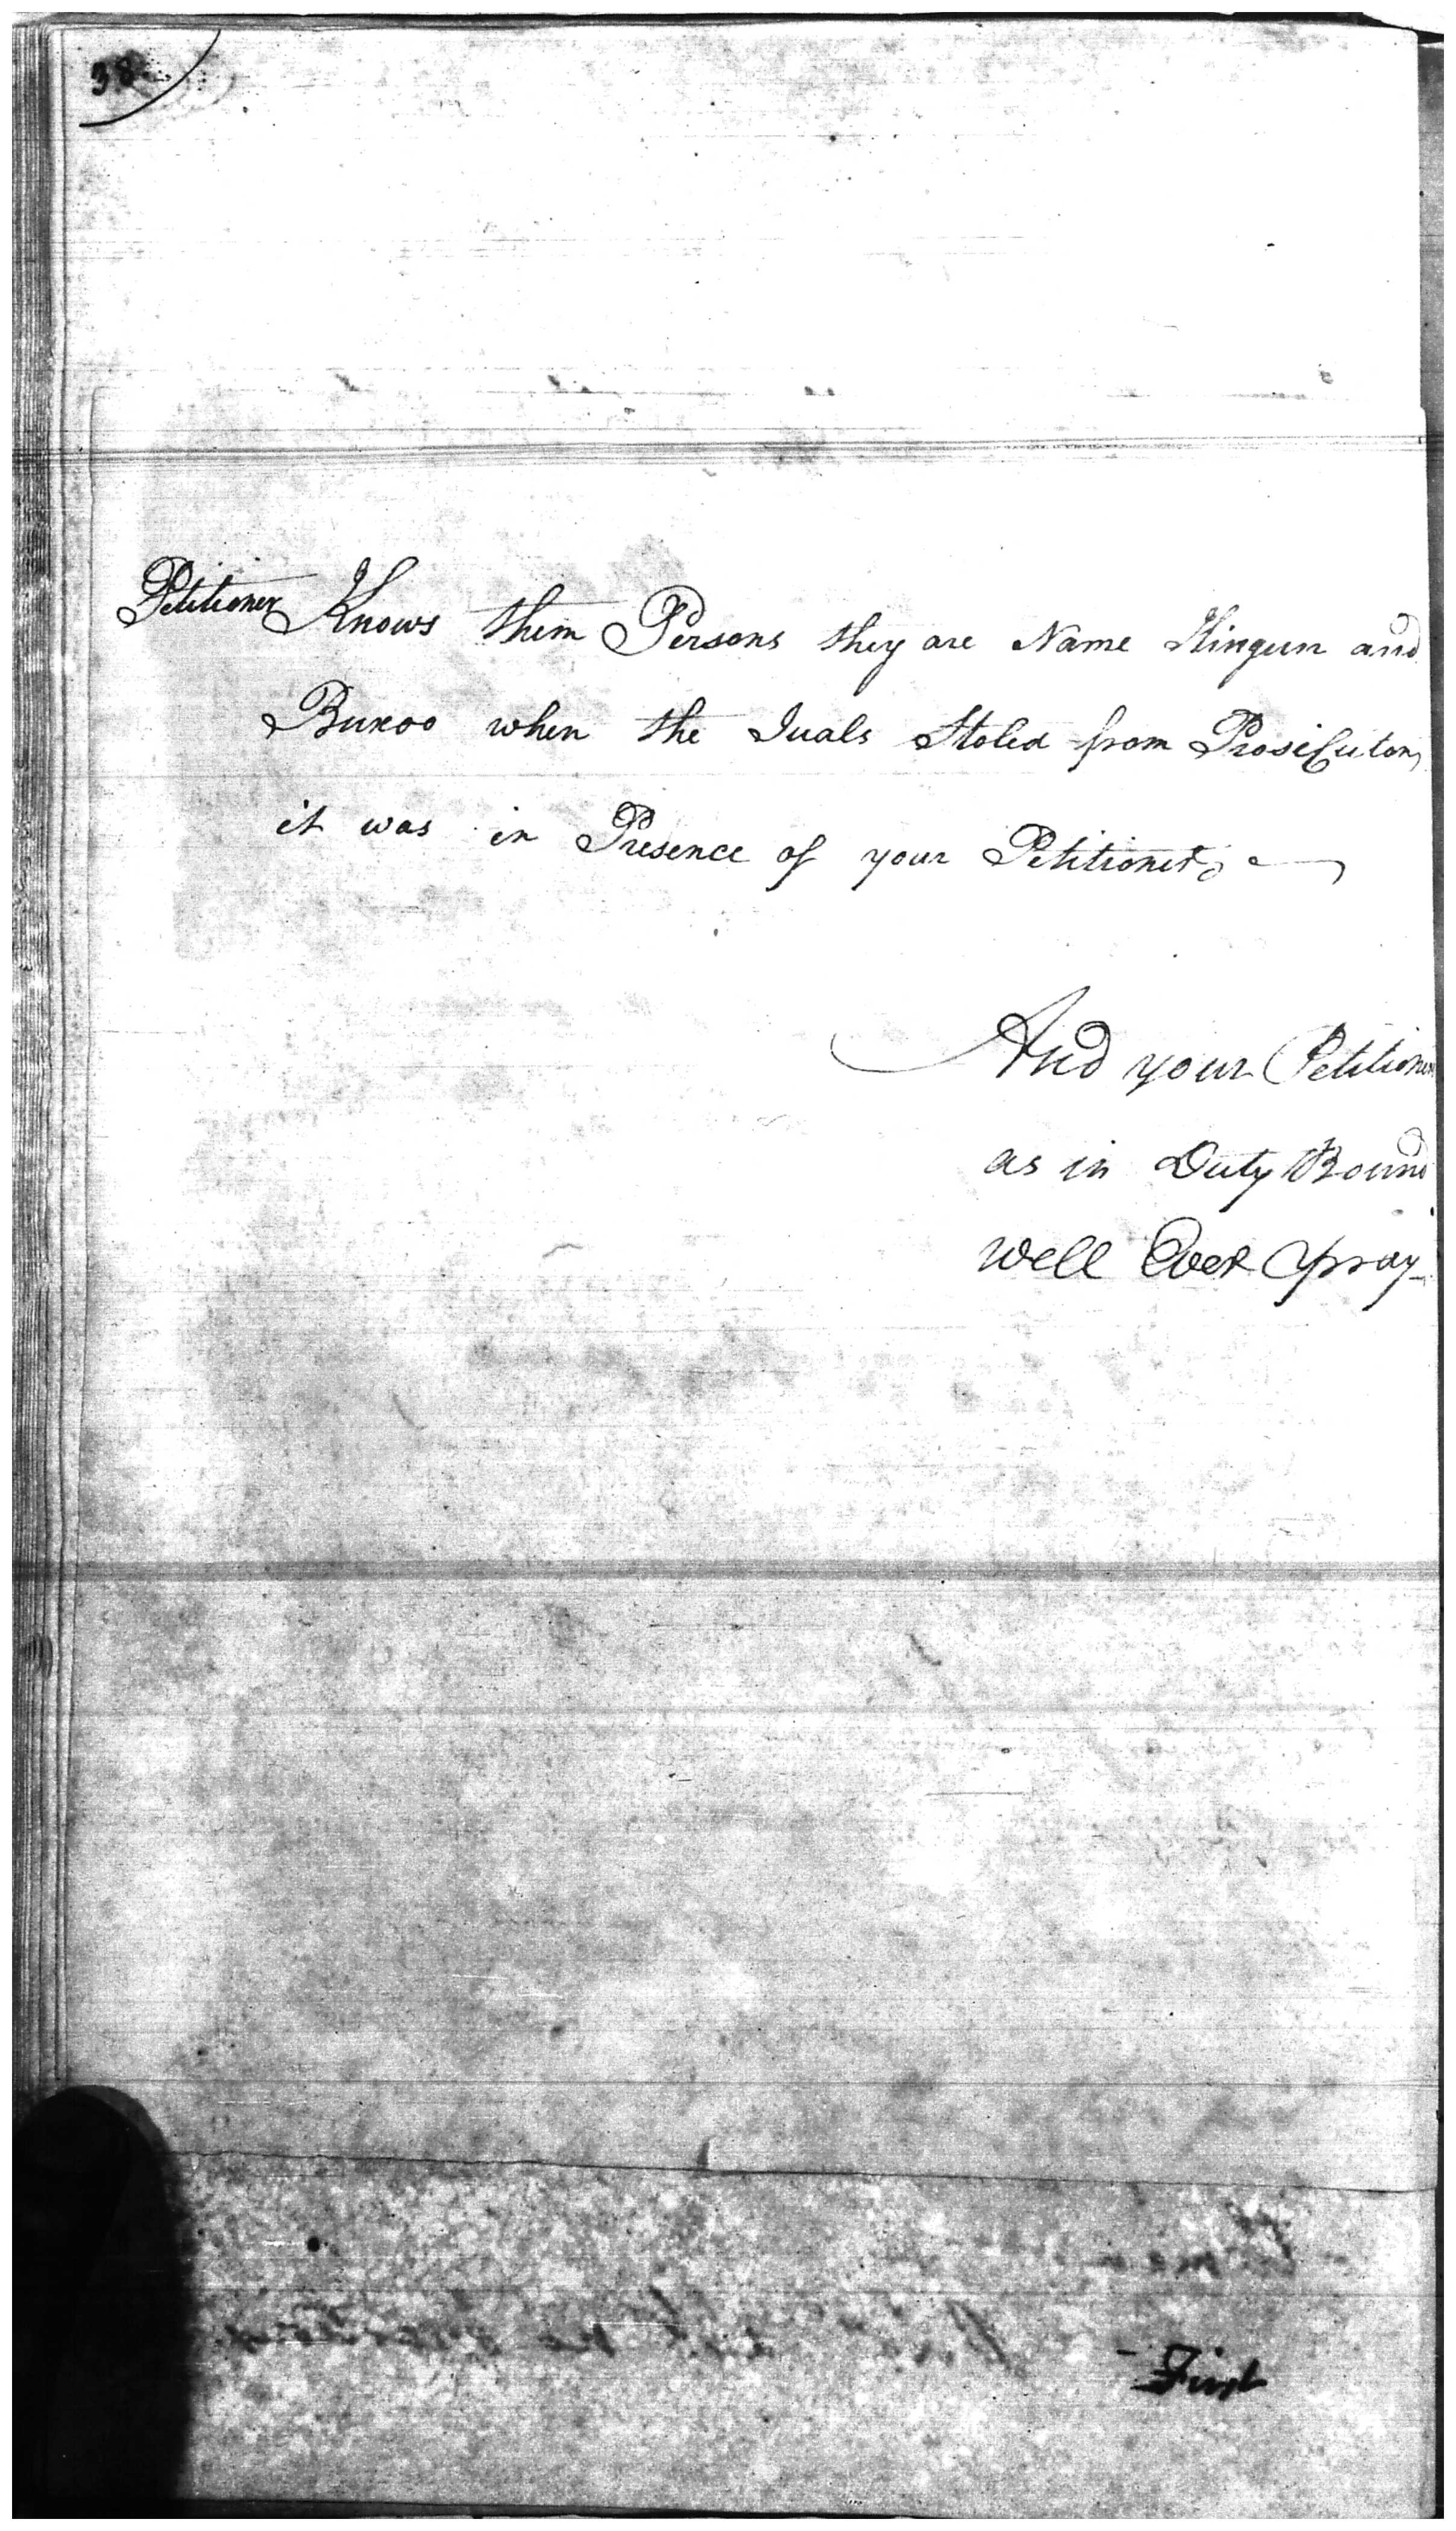 38
Petitioner Knows them Persons they are Name Hingun and
Buxoo when the Juals Stoled from Prosicutor,
it was in Presence of your Petitioner,
And your Petitioner
as in Duty Bound
well Ever Pray
First